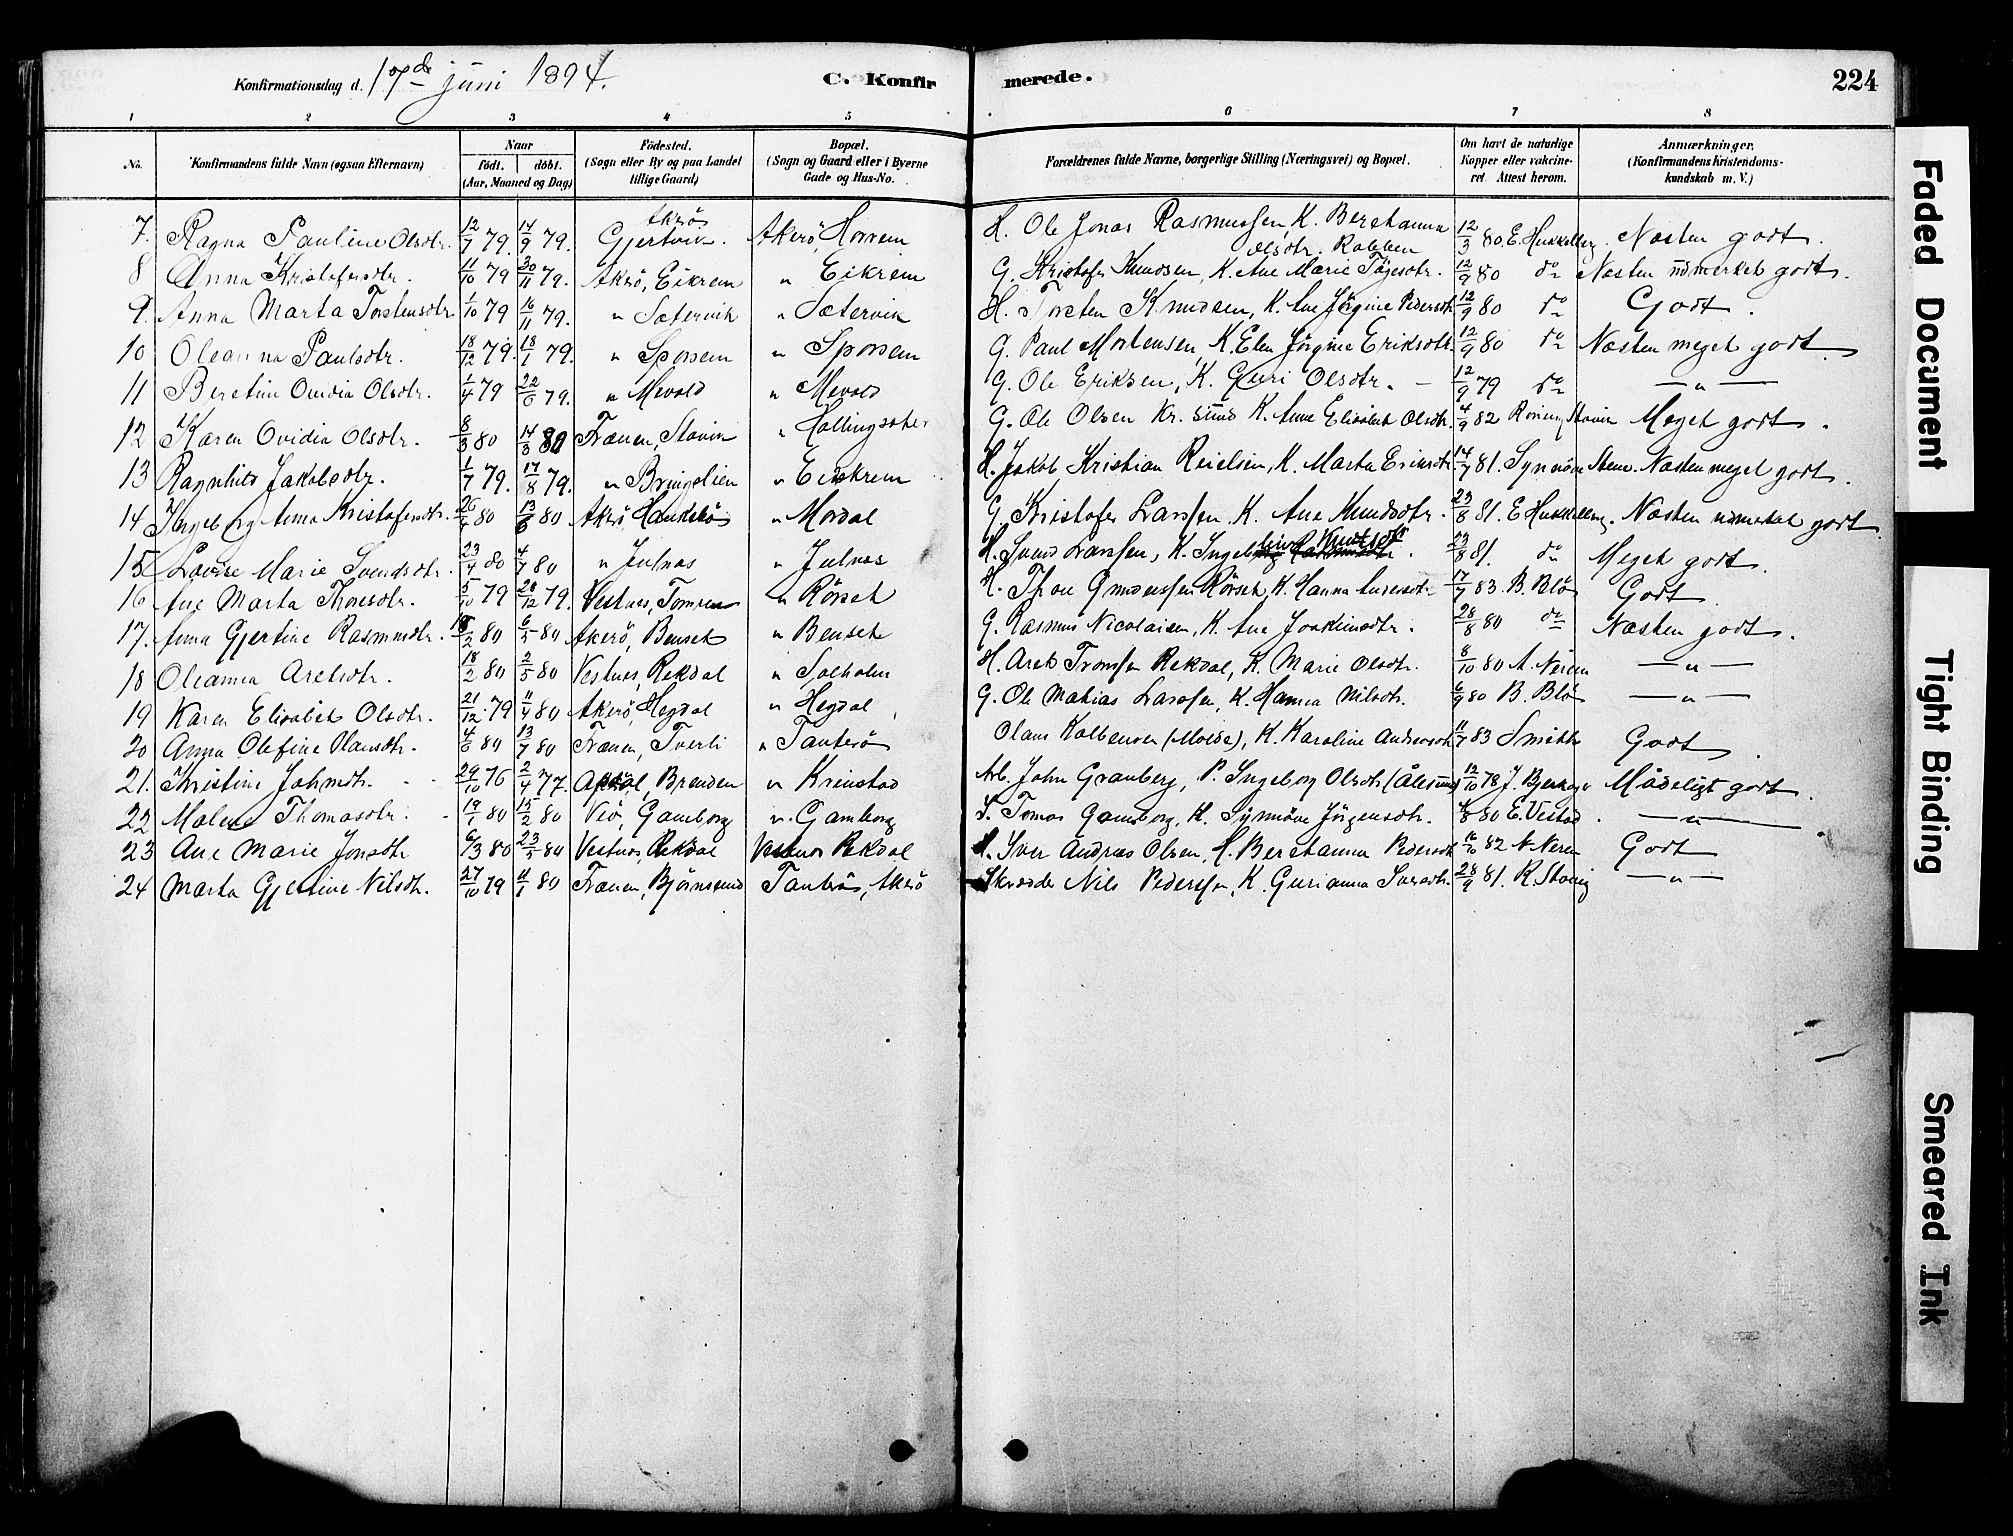 Konfirmationsdag d. 17de juni 1894. C. Konfirmerede. 224
1 2 3 4 5 6 7 8
No. Konfirmandens fulde Navn (ogsaa Efternavn) Naar födt. döbt. (Aar, Maaned og Dag) Födested. (Sogn eller By og paa Landet tillige Gaard) Bopæl. (Sogn og Gaard eller i Byerne Gade og Hus-No. Forældrenes fulde Navne, borgerlige Stilling (Næringsvei) og Bopæl. Om havt de naturlige Kopper eller vakcineret Attest herom. Anmærkninger. (Konfirmandens Kristendomskundskab m. V.)
7. Ragna Pauline Olsdtr. 12/7 79. 14/9 79. Akerö Gjertvik. Akerö, Horsem H. Ole Jonas Rasmussen, K. Berethanna Olsdtr. Rabben 12/3 80. E. Hukkelberg. Næsten godt.
8 Anna Kristofersdtr. 11/10 79 30/11 79. Akerö, Eikrem " Eikrem G. Kristofer Knudsen, K. Ane Marie Tögesdtr. 12/9 80 do Næsten udmerket godt.
9. Anna Marta Torstensdtr 1/10 79 16/11 79. " Sætervik " Sætervik H. Torsten Knudsen, K. Ane Jörgine Pedersdtr 12/9 80 do Godt.
10 Oleanna Paulsdtr. 18/12 79. 18/1 79. " Sporsem " Sporsem G. Paul Mortensen, K. Elen Jörgine Eriksdtr. 12/9 80 do Næsten meget godt.
11 Beretine Ovidia Olsdtr. 1/4 79 22/6 79. " Mevold " Mevold G. Ole Eriksen, K. Guri Olsdtr. 12/9 79 do — " —
12 Karen Ovidia Olsdtr. 8/3 80 14/3 80 Frænen, Stavik " Hollingsholm G. Ole Olsen Kr. sund K. Anne Elisabet Olsdtr. 4/9 82 Stavik Meget godt.
13 Ragnhild Jakobsdtr. 1/7 79. 17/8 79. " Bringslien " Eikrem H. Jakob Kristian Reielsen, K. Marta Eriksdtr. 14/7 81. Synnöve Næsten meget godt.
14 Ingeborg Anna Kristofersdtr. 26/4 80 13/6 80 Akerö, Haukebö " Mordal G. Kristofer Larssen K. Ane Knudsdtr. 23/8 81. E. Hukkelberg. Næsten udmerket godt
15 Lovise Marie Svendsdtr. 23/4 80 4/7 80 " Julnæs " Julnæs H. Svend Larssen, K. Ingeb 23/8 81. do Meget godt.
16 Ane Marta Thoresdtr. 5/10 79 28/12 79. Vestnes, Tomren " Rörset H. Thore Rörset, K. Hanna 17/7 83. B. Blö Godt
17. Anna Gjertine Rasmusdtr. 18/2 80 6/5 80 Akerö, Bendset " Bendset G. Rasmus Nicolaisen, K. Ane Joakimsdtr. 28/8 80 do Næsten godt.
18 Oleanna Aretsdtr. 18/2 80 2/5 80 Vestnes, Rekdal " Solholm H. Aret Tronssen Rekdal, K. Marie Olsdtr. 8/10 80 A. Neren — " —
19 Karen Elisabet Olsdtr. 21/12 79 11/4 80 Akerö, Hegdal " Hegdal G. Ole Mathias Larssen, K. Hanna Nilsdtr. 6/9 80 B. Blö — " —
20 Anna Olefine Olausdtr. 4/6 80 13/7 80 Frænen, Tverli " Tauterö Olaus Kolbensen (Molde), K. Karoline Andersdtr 11/7 83 Smith Godt
21. Kristine Johnsdtr. 29/10 76 2/4 77. Brenden " Kringstad Arb. John Granberg, P. Ingeborg Olsdtr. (Ålesund) 12/10 78 J. Mådeligt godt.
22 Malene Thomasdtr. 19/1 80 15/2 80 Veö, Gamborg " Gamborg S. Tomas Gamborg, K. Synnöve Jörgensdtr. 4/8 80 E. Vestad — " —
23 Ane Marie Jonsdtr 6/3 80 23/5 80 Vestnes, Rekdal Vestnes Rekdal H. Iver Andreas Olsen, K. Berethanna Pedersdtr 16/10 82 N. Neren Godt
24 Marta Gjertine Nilsdtr. 27/10 79 11/1 80 Frænen, Björnsund Tauterö, Akerö Skrædder Nils Pederssen, K. Gurianna Iversdtr. 28/9 81. R. Stavig — " —
Faded Document
Tight Binding
Smeared Ink